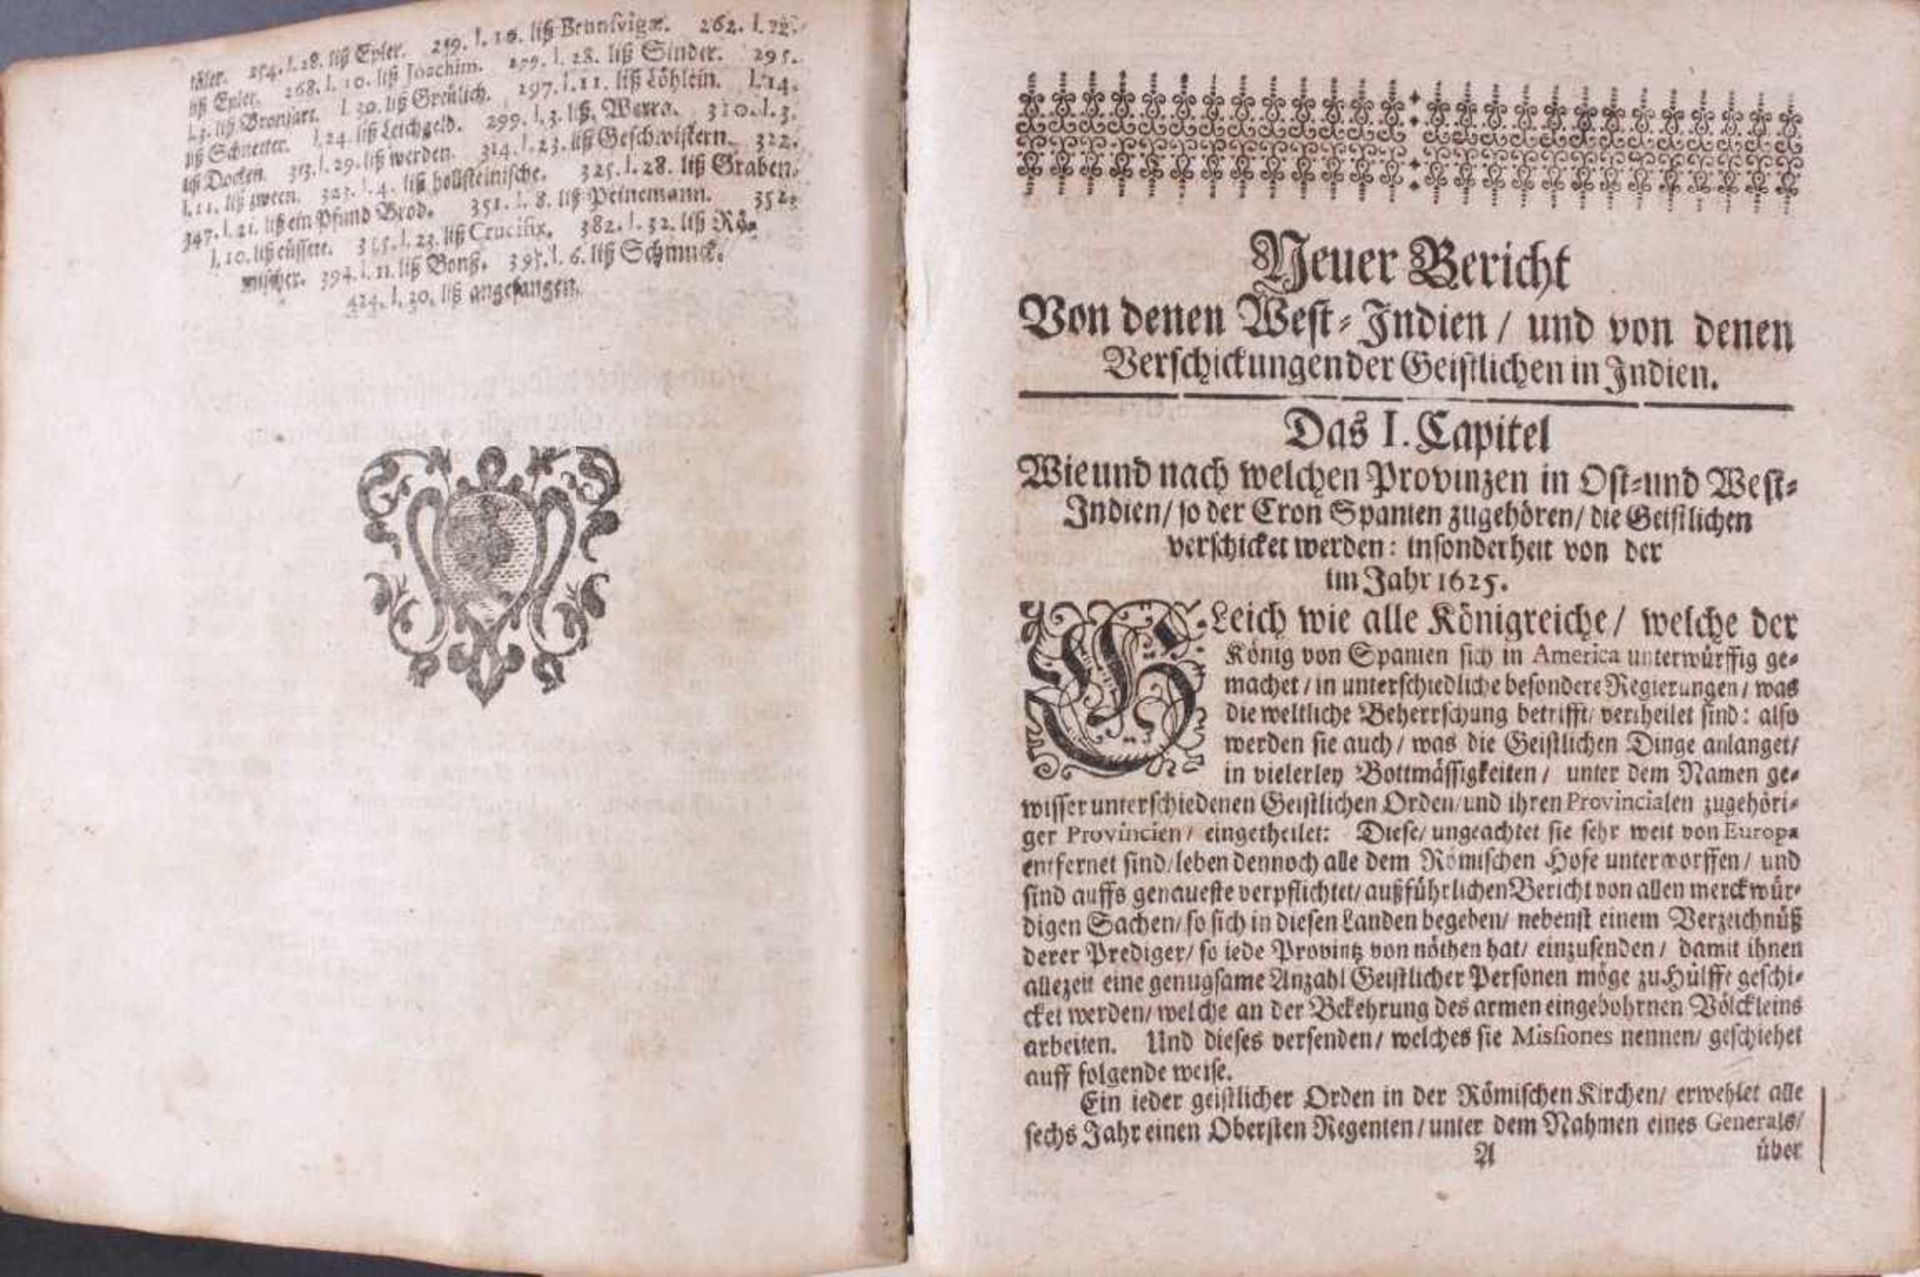 254. l. 28. liß Epler. 259. l. 10. liß Brunsvigæ. 262. l. 22.
liß Epler. 268. l. 10. liß Joachim. l. 28. liß Sinder. 295.
l. 3. liß Bronsart. l. 30. liß Greulich. 297. l. 11. liß Löhlein. l. 14.
liß Schnetter. l. 24. liß Leichgeld. 299. l. 3. liß. 310. l. 3.
liß Docken. 313. l. 29. liß werden. 314. l. 23. liß Geschwistern. 322.
l. 11. liß zween. 323. l. 4. liß hollsteinische. 325. l. 28. liß Graben.
347. l. 21. liß ein Pfund Brod. 351. l. 8. liß Peinemann. 352.
l. 10. liß l. 23. liß Crucifix. 382. l. 32. liß Rö-
mischer. 394. l. 11. liß Bonß. 395. l. 6. liß Schmuck.
424. l. 30. liß angefangen.
Neuer Bericht
Von denen West-Indien / und von denen
Verschickungen der Geistlichen in Indien.
Das I. Capitel
Wie und nach welchen Provinzen in Ost- und West-
Indien / so der Cron Spanien zugehören / die Geistlichen
verschicket werden: insonderheit von der
im Jahr 1625.
GLeich wie alle Königreiche / welche der
König von Spanien sich in America unterwürffig ge-
machet / in unterschiedliche besondere Regierungen / was
die weltliche Beherrschung betrifft / vertheilet sind: also
werden sie auch / was die Geistlichen Dinge anlanget /
in vielerley Bottmässigkeiten / unter dem Namen ge-
wisser unterschiedenen Geistlichen Orden / und ihren Provincialen zugehöri-
ger Provincien / eingetheilet: Diese / ungeachtet sie sehr weit von Europa
entfernet sind / leben dennoch alle dem Römischen Hofe unterworffen / und
sind auffs genaueste verpflichtet / außführlichen Bericht von allen merckwür-
digen Sachen / so sich in diesen Landen begeben / nebenst einem Verzeichnüß
derer Prediger / so iede Provintz von nöthen hat / einzusenden / damit ihnen
allezeit eine genugsame Anzahl Geistlicher Personen möge zu Hülffe geschi-
cket werden / welche an der Bekehrung des armen eingebohrnen Völckleins
arbeiten. Und dieses versenden / welches sie Missiones nennen / geschiehet
auff folgende weise.
Ein ieder geistlicher Orden in der Römischen Kirchen / erwehlet alle
sechs Jahr einen Obersten Regenten / unter dem Nahmen eines Generals /
A über